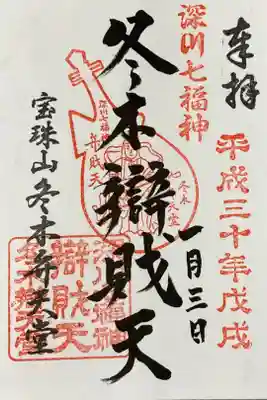 奉拝
平成三十年戊戌
一月三日
深川七福神
冬木辯財天
深川七福神
弁財天
冬木
弁天堂
宝珠山冬木弁天堂
深川七福神
辯財天
冬木弁天堂